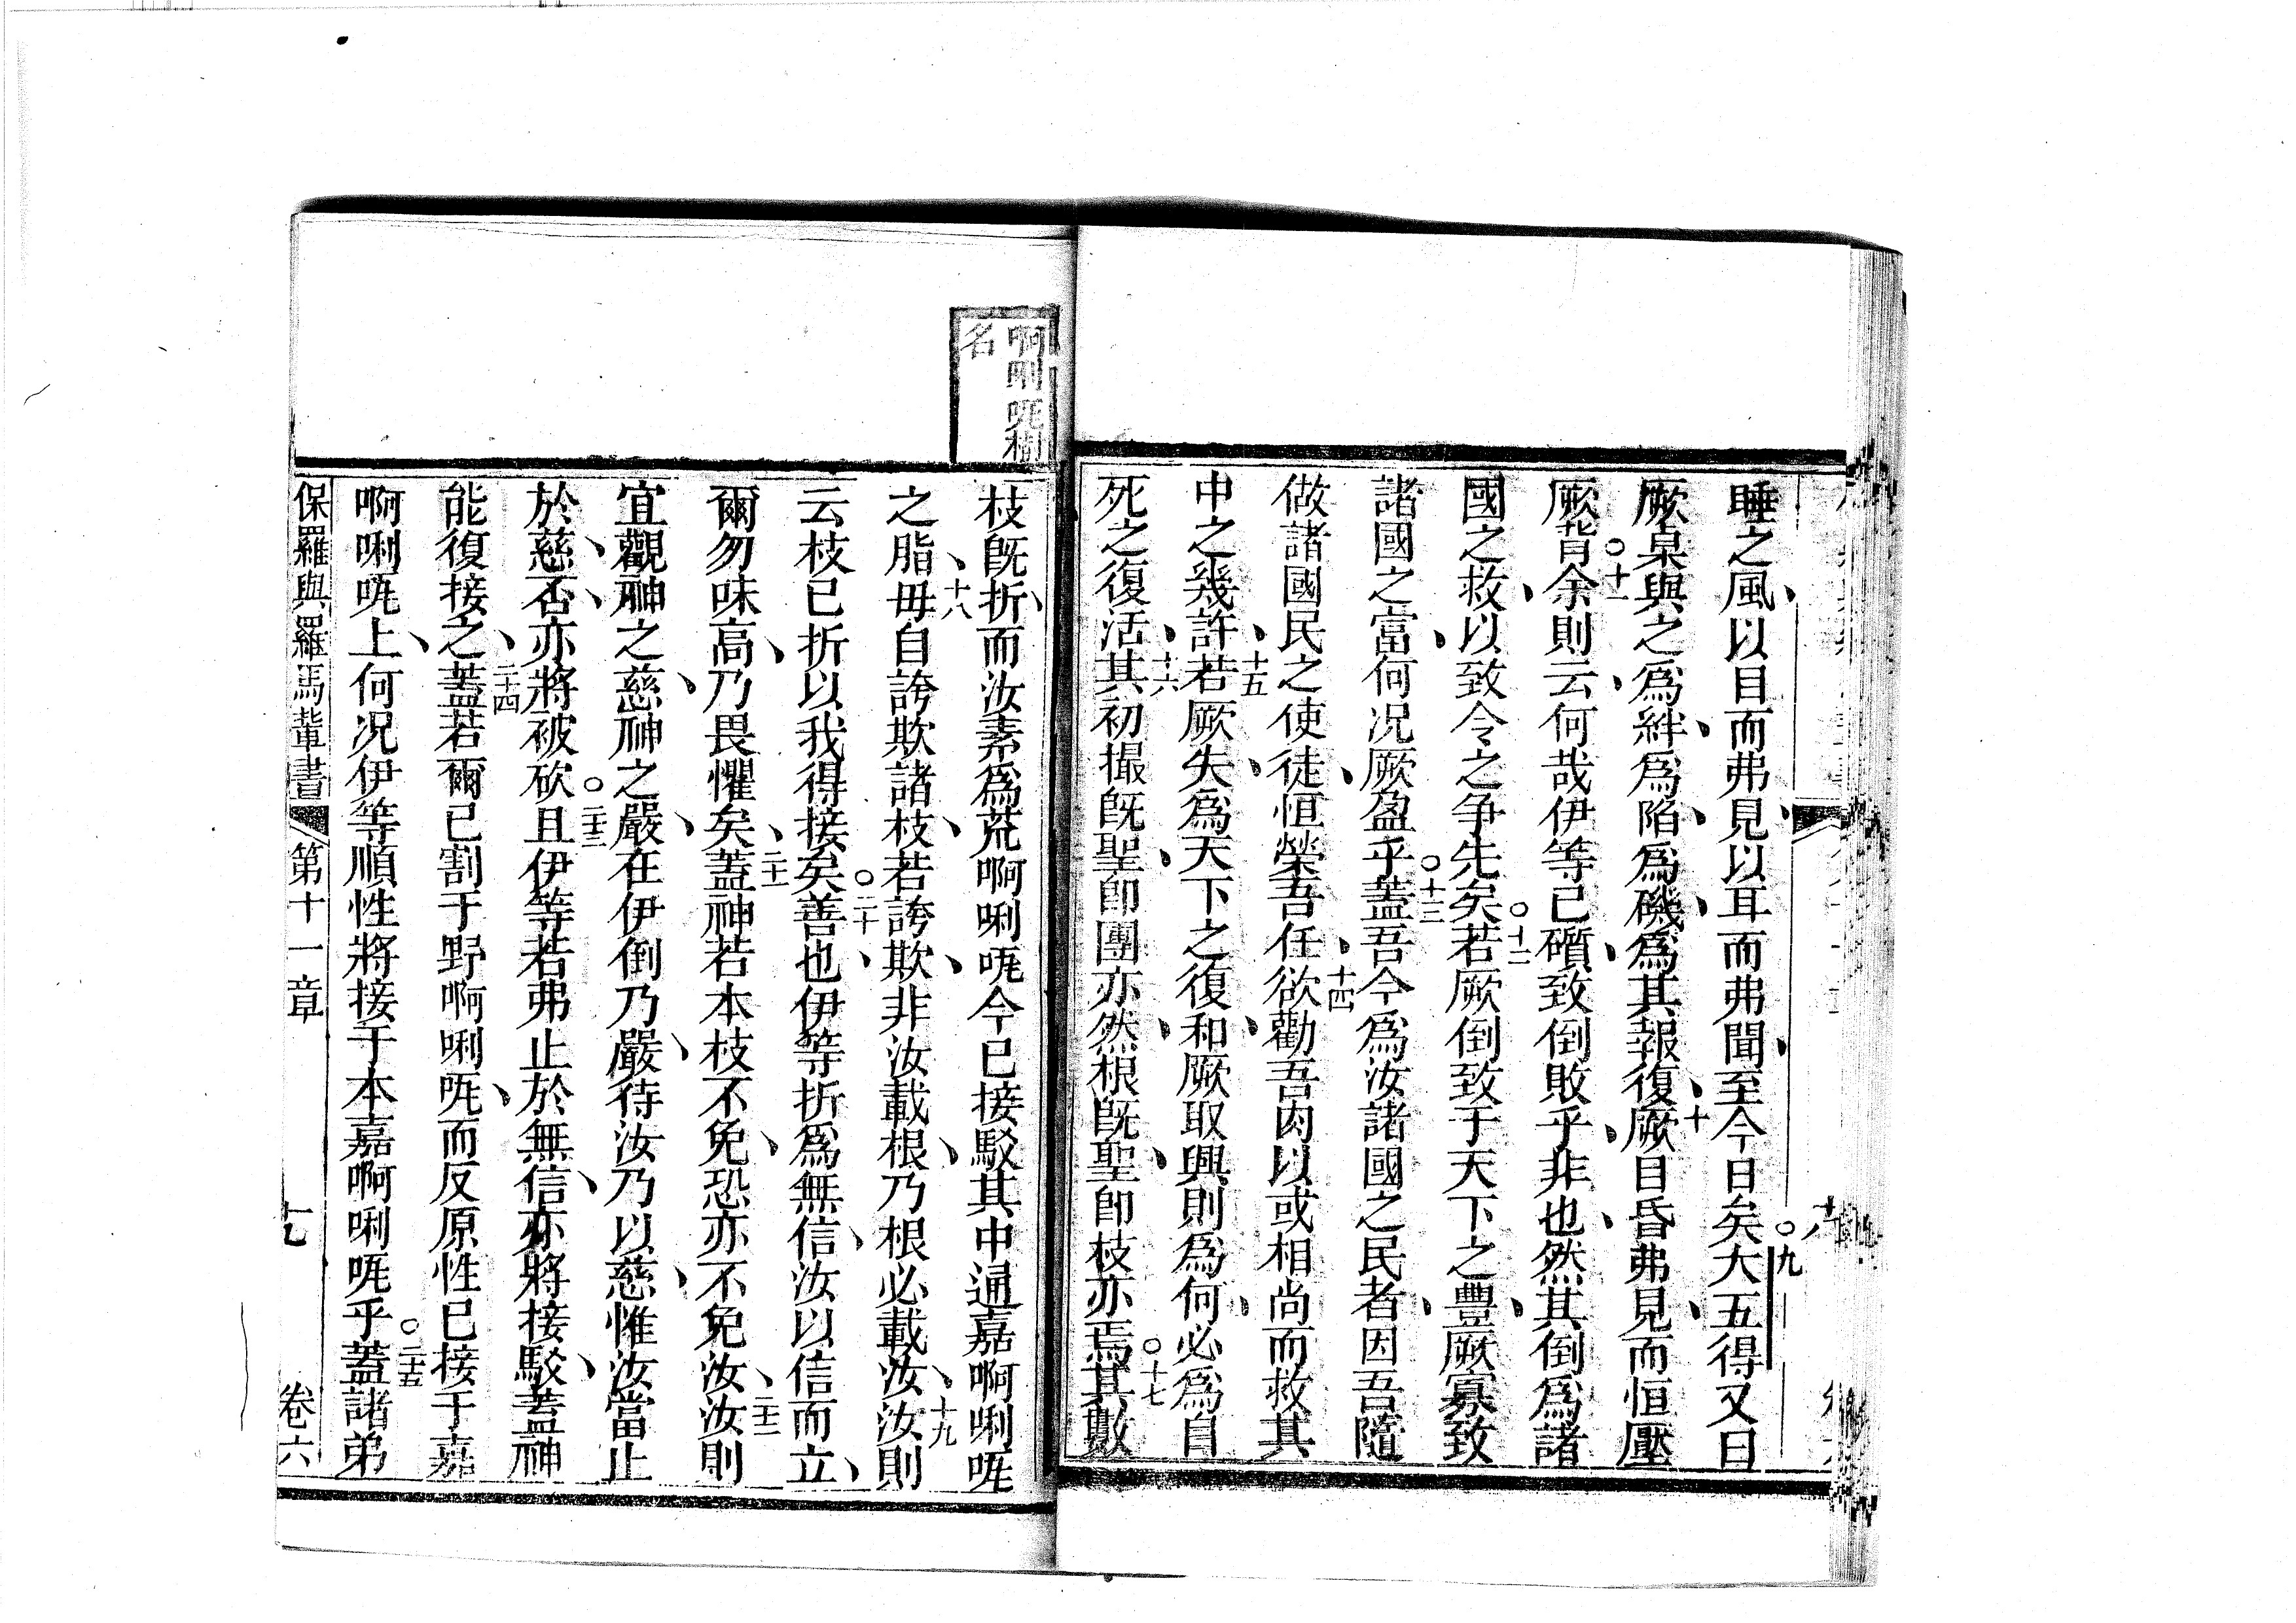 睡之風、以目而弗見、以耳而弗聞、至今日矣。九大五得又曰
厥桌與之爲絆、爲陷、爲磯、爲其報復、十厥目昏弗見、而恒壓
厥背。十一余則云、何哉伊等已礩、致倒敗乎、非也、然其倒爲諸
國之救、以致令之争先矣。十二若厥倒致于天下之豐、厥寡致
諸國之富、何况厥盈乎。十三蓋吾今爲汝諸國之民者、因吾隨
做諸國民之使徒、恒榮吾任、十四欲勸吾肉以或相尚而救其
中之幾許、十五若厥失、爲天下之復和、厥取興則爲何、必爲自
死之復活、十六其初撮既聖、即團亦然、根既聖、即枝亦焉。十七其數
啊唎𠵽樹
名
枝既折、而汝素爲荒啊唎𠵽、今已接駁其中、通嘉啊唎𠵽
之脂、十八毋自誇欺諸枝、若誇欺、非汝載根、乃根必載汝、十九汝則
云枝已折、以我得接矣。二十善也、伊等折爲無信、汝以信而立、
爾勿味高、乃畏懼矣、二十一蓋神若本枝不免、恐亦不免汝、二十二汝則
宜觀神之慈、神之嚴、在伊倒乃嚴、待汝乃以慈、惟汝當止
於慈、否、亦將被砍。二十三且伊等若弗止於無信、亦將接駁、蓋神
能復接之、二十四蓋若爾已割于野啊唎𠵽、而反原性已接于嘉
啊唎𠵽上、何况伊等順性將接于本嘉啊唎𠵽乎。二十五蓋諸弟
保羅與羅馬輩書 第十一章 七 卷六